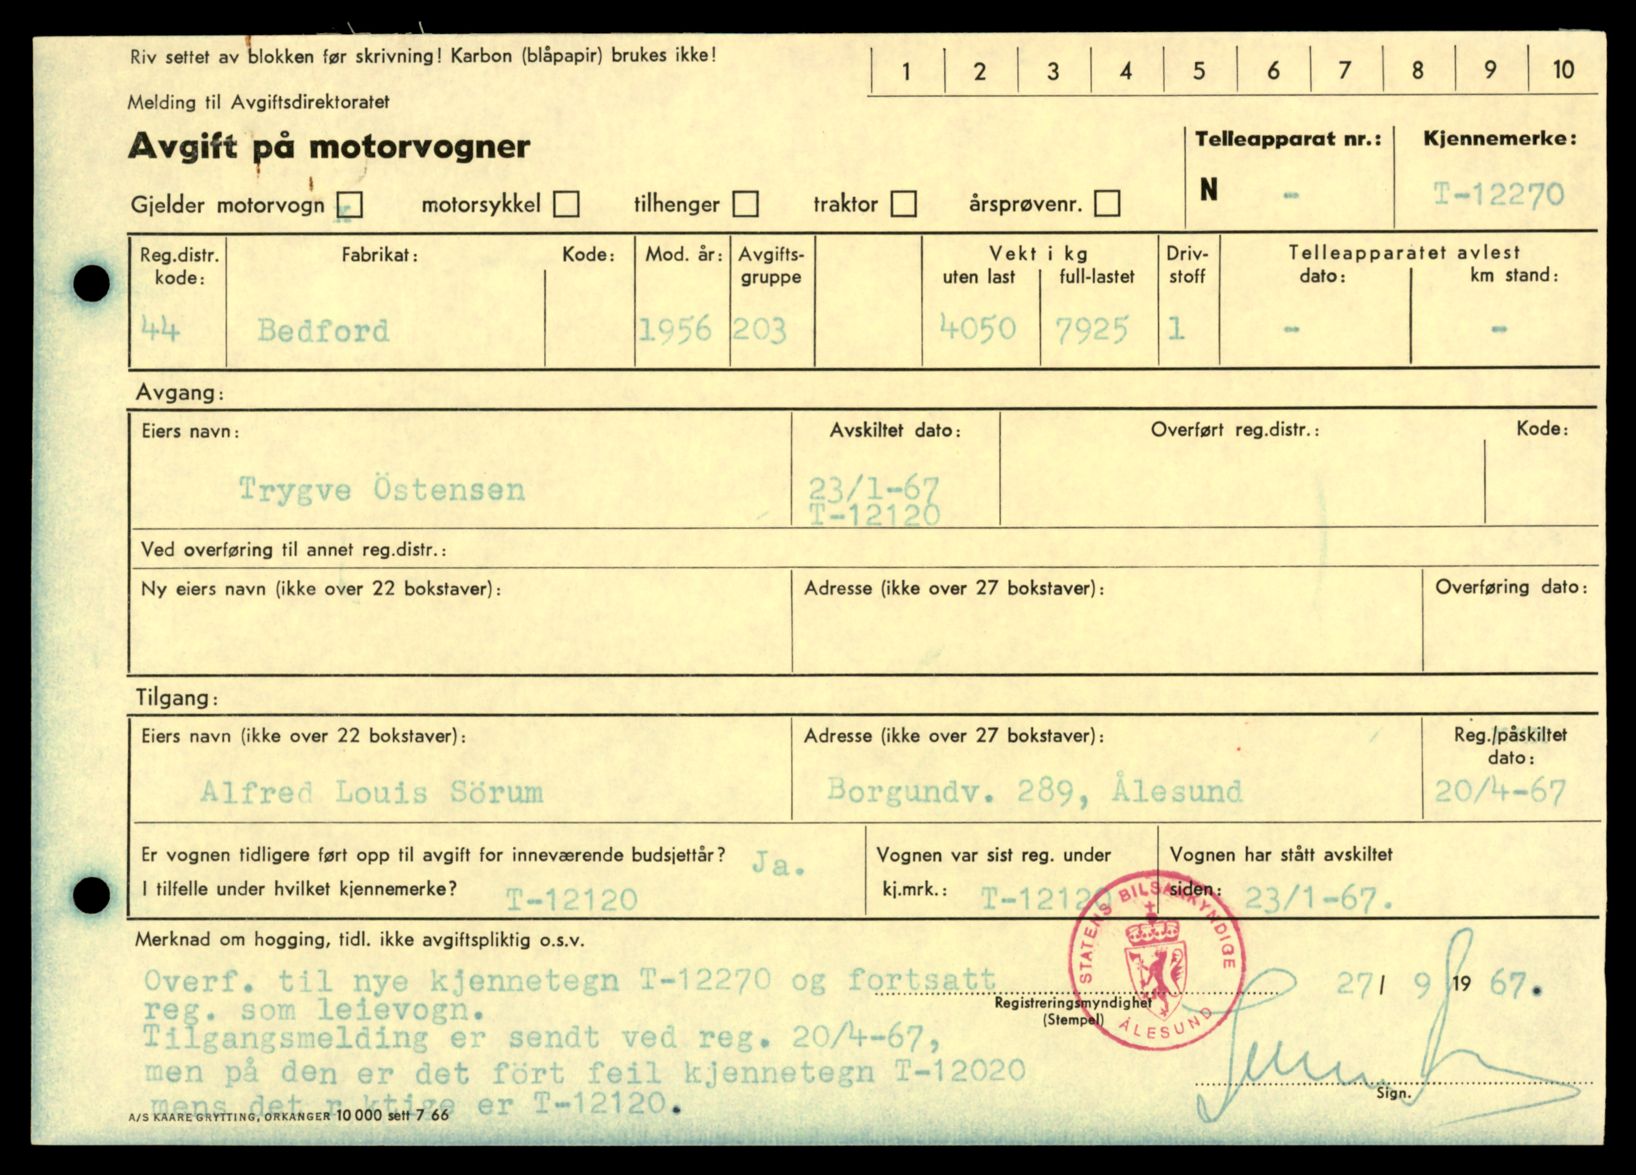 Riv settet av blokken før skrivning! Karbon (blåpapir) brukes ikke!
1 2 3 4 5 6 7 8 9 10
Melding til Avgiftsdirektoratet
Avgift på motorvogner
Telleapparat nr.: Kjennemerke:
N - T-12270
Gjelder motorvogn x motorsykkel tilhenger traktor årsprøvenr.
Reg.distr. kode: Fabrikat: Kode: Mod. år: Avgifts-gruppe Vekt i kg uten last full-lastet Driv-stoff Telleapparatet avlest dato: km stand:
44 Bedford 1956 203 4050 7925 1 - -
Avgang:
Eiers navn: Avskiltet dato: Overført reg.distr.: Kode:
Trygve Östensen 23/1-67
T-12120
Ved overføring til annet reg.distr.:
Ny eiers navn (ikke over 22 bokstaver): Adresse (ikke over 27 bokstaver): Overføring dato:
Tilgang:
Eiers navn (ikke over 22 bokstaver): Adresse (ikke over 27 bokstaver): Reg./påskiltet dato:
Alfred Louis Sörum Borgundv. 289, Ålesund 20/4-67
Er vognen tidligere ført opp til avgift for inneværende budsjettår? Ja.
I tilfelle under hvilket kjennemerke? T-12120
Vognen var sist reg. under
kj.mrk.: T-12120
Vognen har stått avskiltet
siden: 23/1-67.
Merknad om hogging, tidl. ikke avgiftspliktig o.s.v.
Overf. til nye kjennetegn T-12270 og fortsatt
reg. som leievogn.
Tilgangsmelding er sendt ved reg. 20/4-67,
men på den er det fört feil kjennetegn T-12020
mens det r ktige er T-12120.
STATENS BILSAKKYNDIGE
ÅLESUND
Registreringsmyndighet
(Stempel)
27/ 9 19 67.
Sign.
A/S KAARE GRYTTING, ORKANGER 10 000 sett 7 66